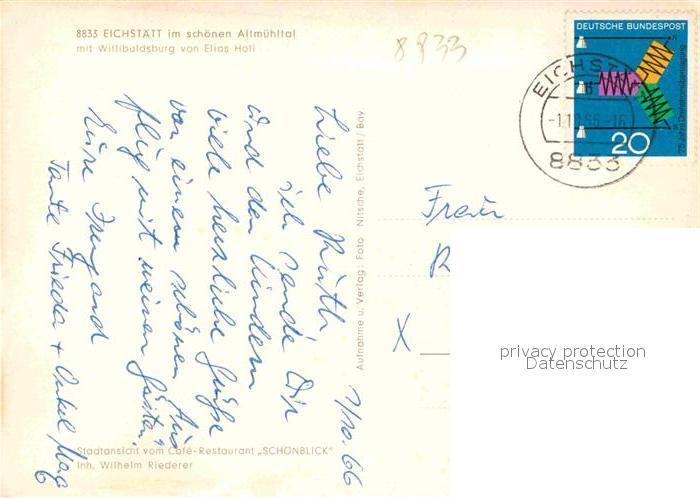 8833 EICHSTÄTT im schönen Altmühltal
mit Willibaldsburg von Elias Holl
8833
DEUTSCHE BUNDESPOST
75 Jahre Drehstromübertragung
20
EICHST
-1.10.66-16
8833
1/10.66
Liebe Ruth
ich sende Dir
und den Kindern
viele herzliche Grüße
von einem schönen Aus
flug mit meinen Gästen.
Eure Irmgard
Tante Frieda + Onkel Mag
Aufnahme u. Verlag: Foto Nitsche, Eichstätt / Bay.
Frau
R
X
privacy protection
Datenschutz
Stadtansicht vom Café-Restaurant „SCHÖNBLICK"
Inh. Wilhelm Riederer